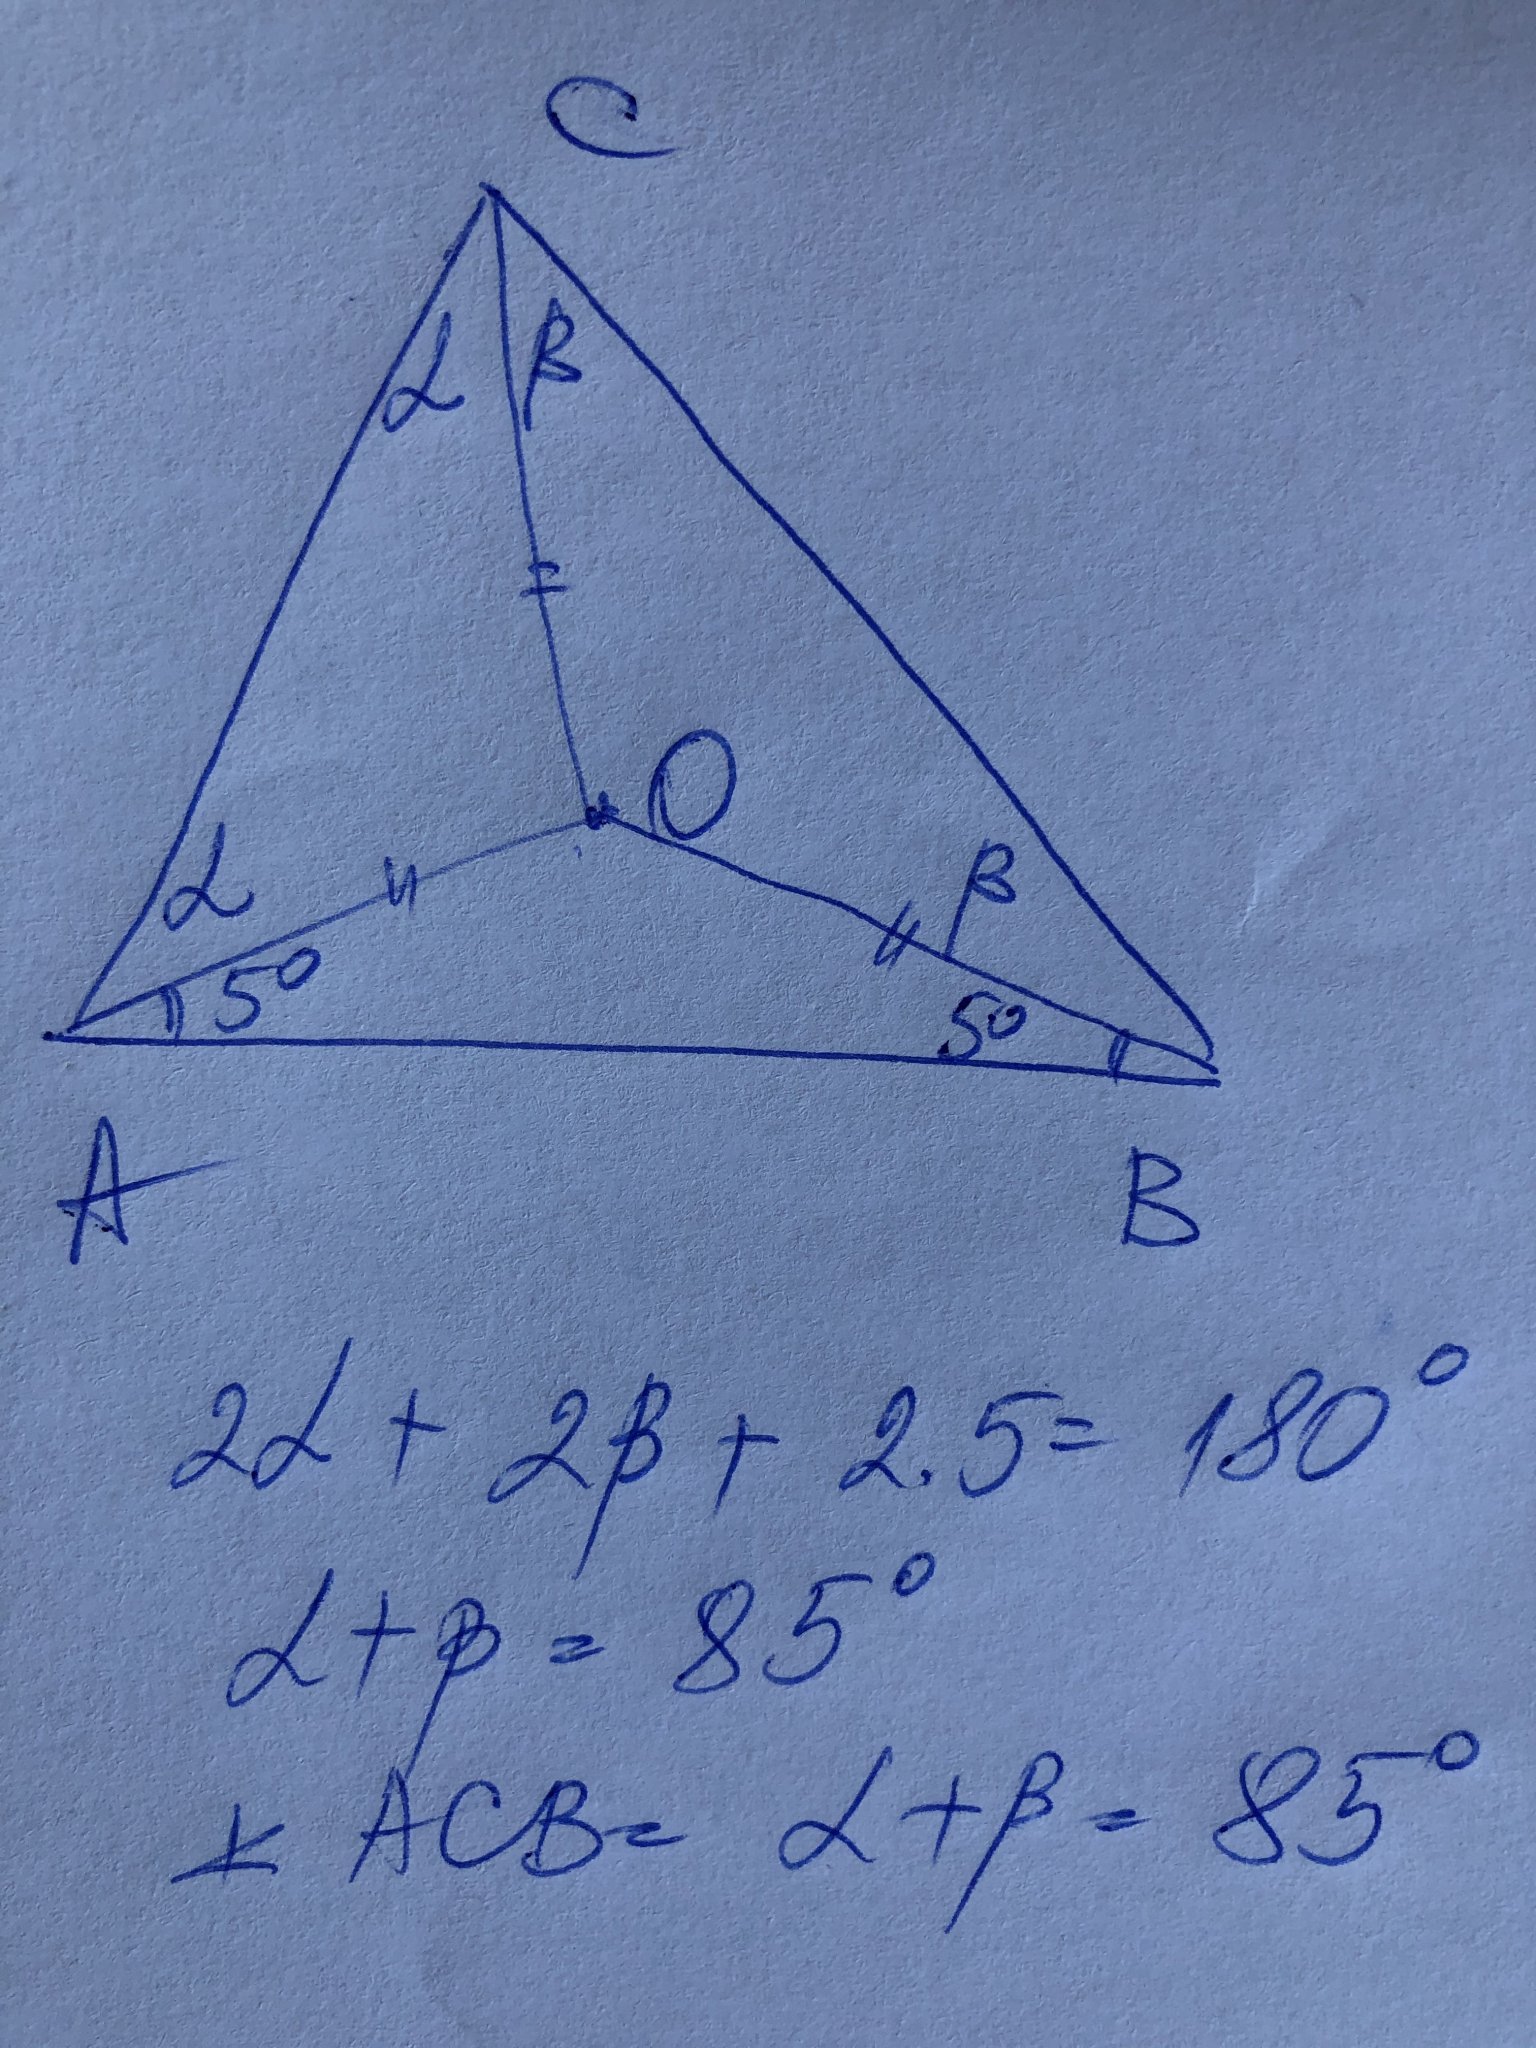 C
α β
O
α β
5° 5°
A B
2α + 2β + 2.5 = 180°
α + β = 85°
∠ ACB = α + β = 85°